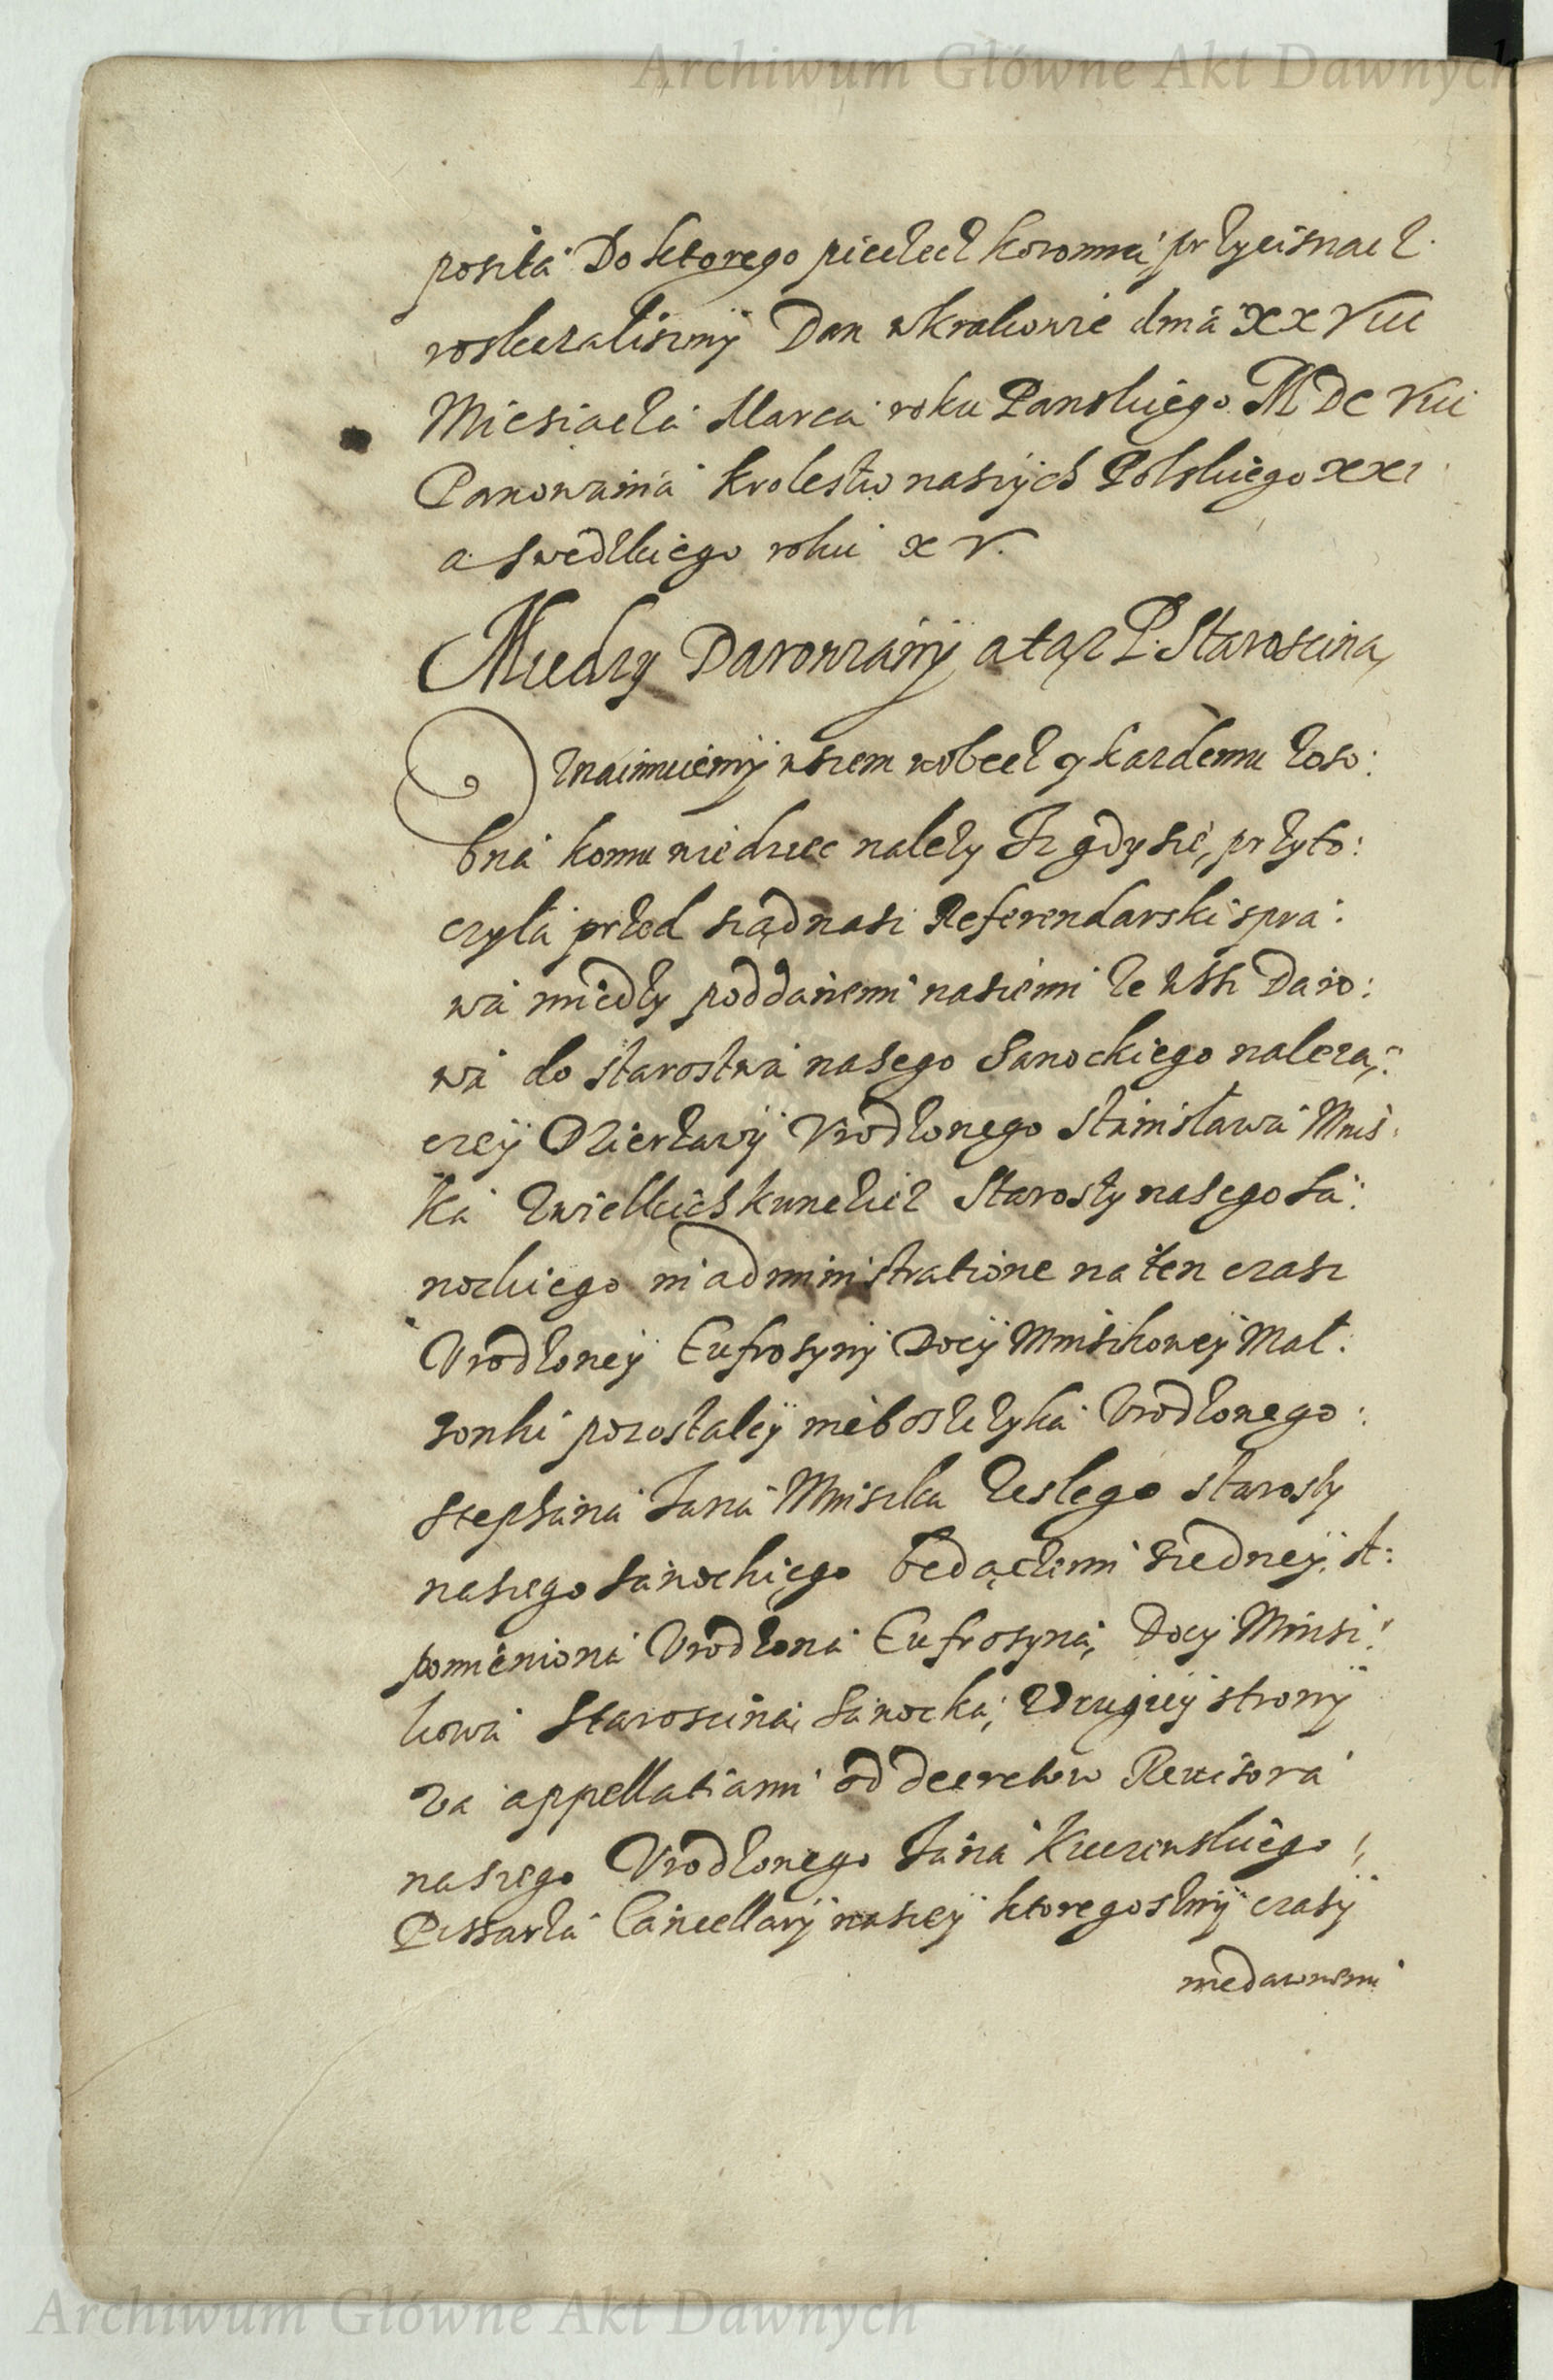 Archiwum Główne Akt Dawnych
posiła Do ktorego pieczęcz koronną przycisnącz
roskazalismy Dan w Krakowie dnia XXVIII
Miesiącza Marca roku Panskiego MDCVIII
Panowania krolestw naszych Polskiego XXI
a swedzkiego roku XV.
Miedzy Darowiany a tąz P. Staroscina,
Oznaimuiemy wszem wobecz y kazdemu zoso:
bna komu wiedziec nalezy Iz gdy sie, przyto:
czyla przed sąd nasz Referendarski spra:
wa miedzy poddanemi naszemi ze wsi Daro:
wa do starostwa nasego Sanockiego naleza,:
czey Dzierzawy Vrodzonego Stanisława Mnis:
ka Zwielkich Kunczicz Starosty nasego Sa:
nockiego in administratione na ten czasz
Vrodzoney Eufrosyny Doci Mnishowey Mał:
zonki pozostałey nieboszczyka Vrodzonego:
Stephana Jana Mniszka zeslego starosty
naszego Sanockiego będączemi ziedney, A:
pomieniona Vrodzona Eufrosyna, Doci Mnisz:
kowa Staroscina, Sanocka, Zdrugiey strony
za appellatiami od decretow Reuisora
naszego Vrodzonego Jana Kuczewskiego
Pissarza Cancellary naszey ktoregosmy czasy
niedawnemi
Archiwum Główne Akt Dawnych